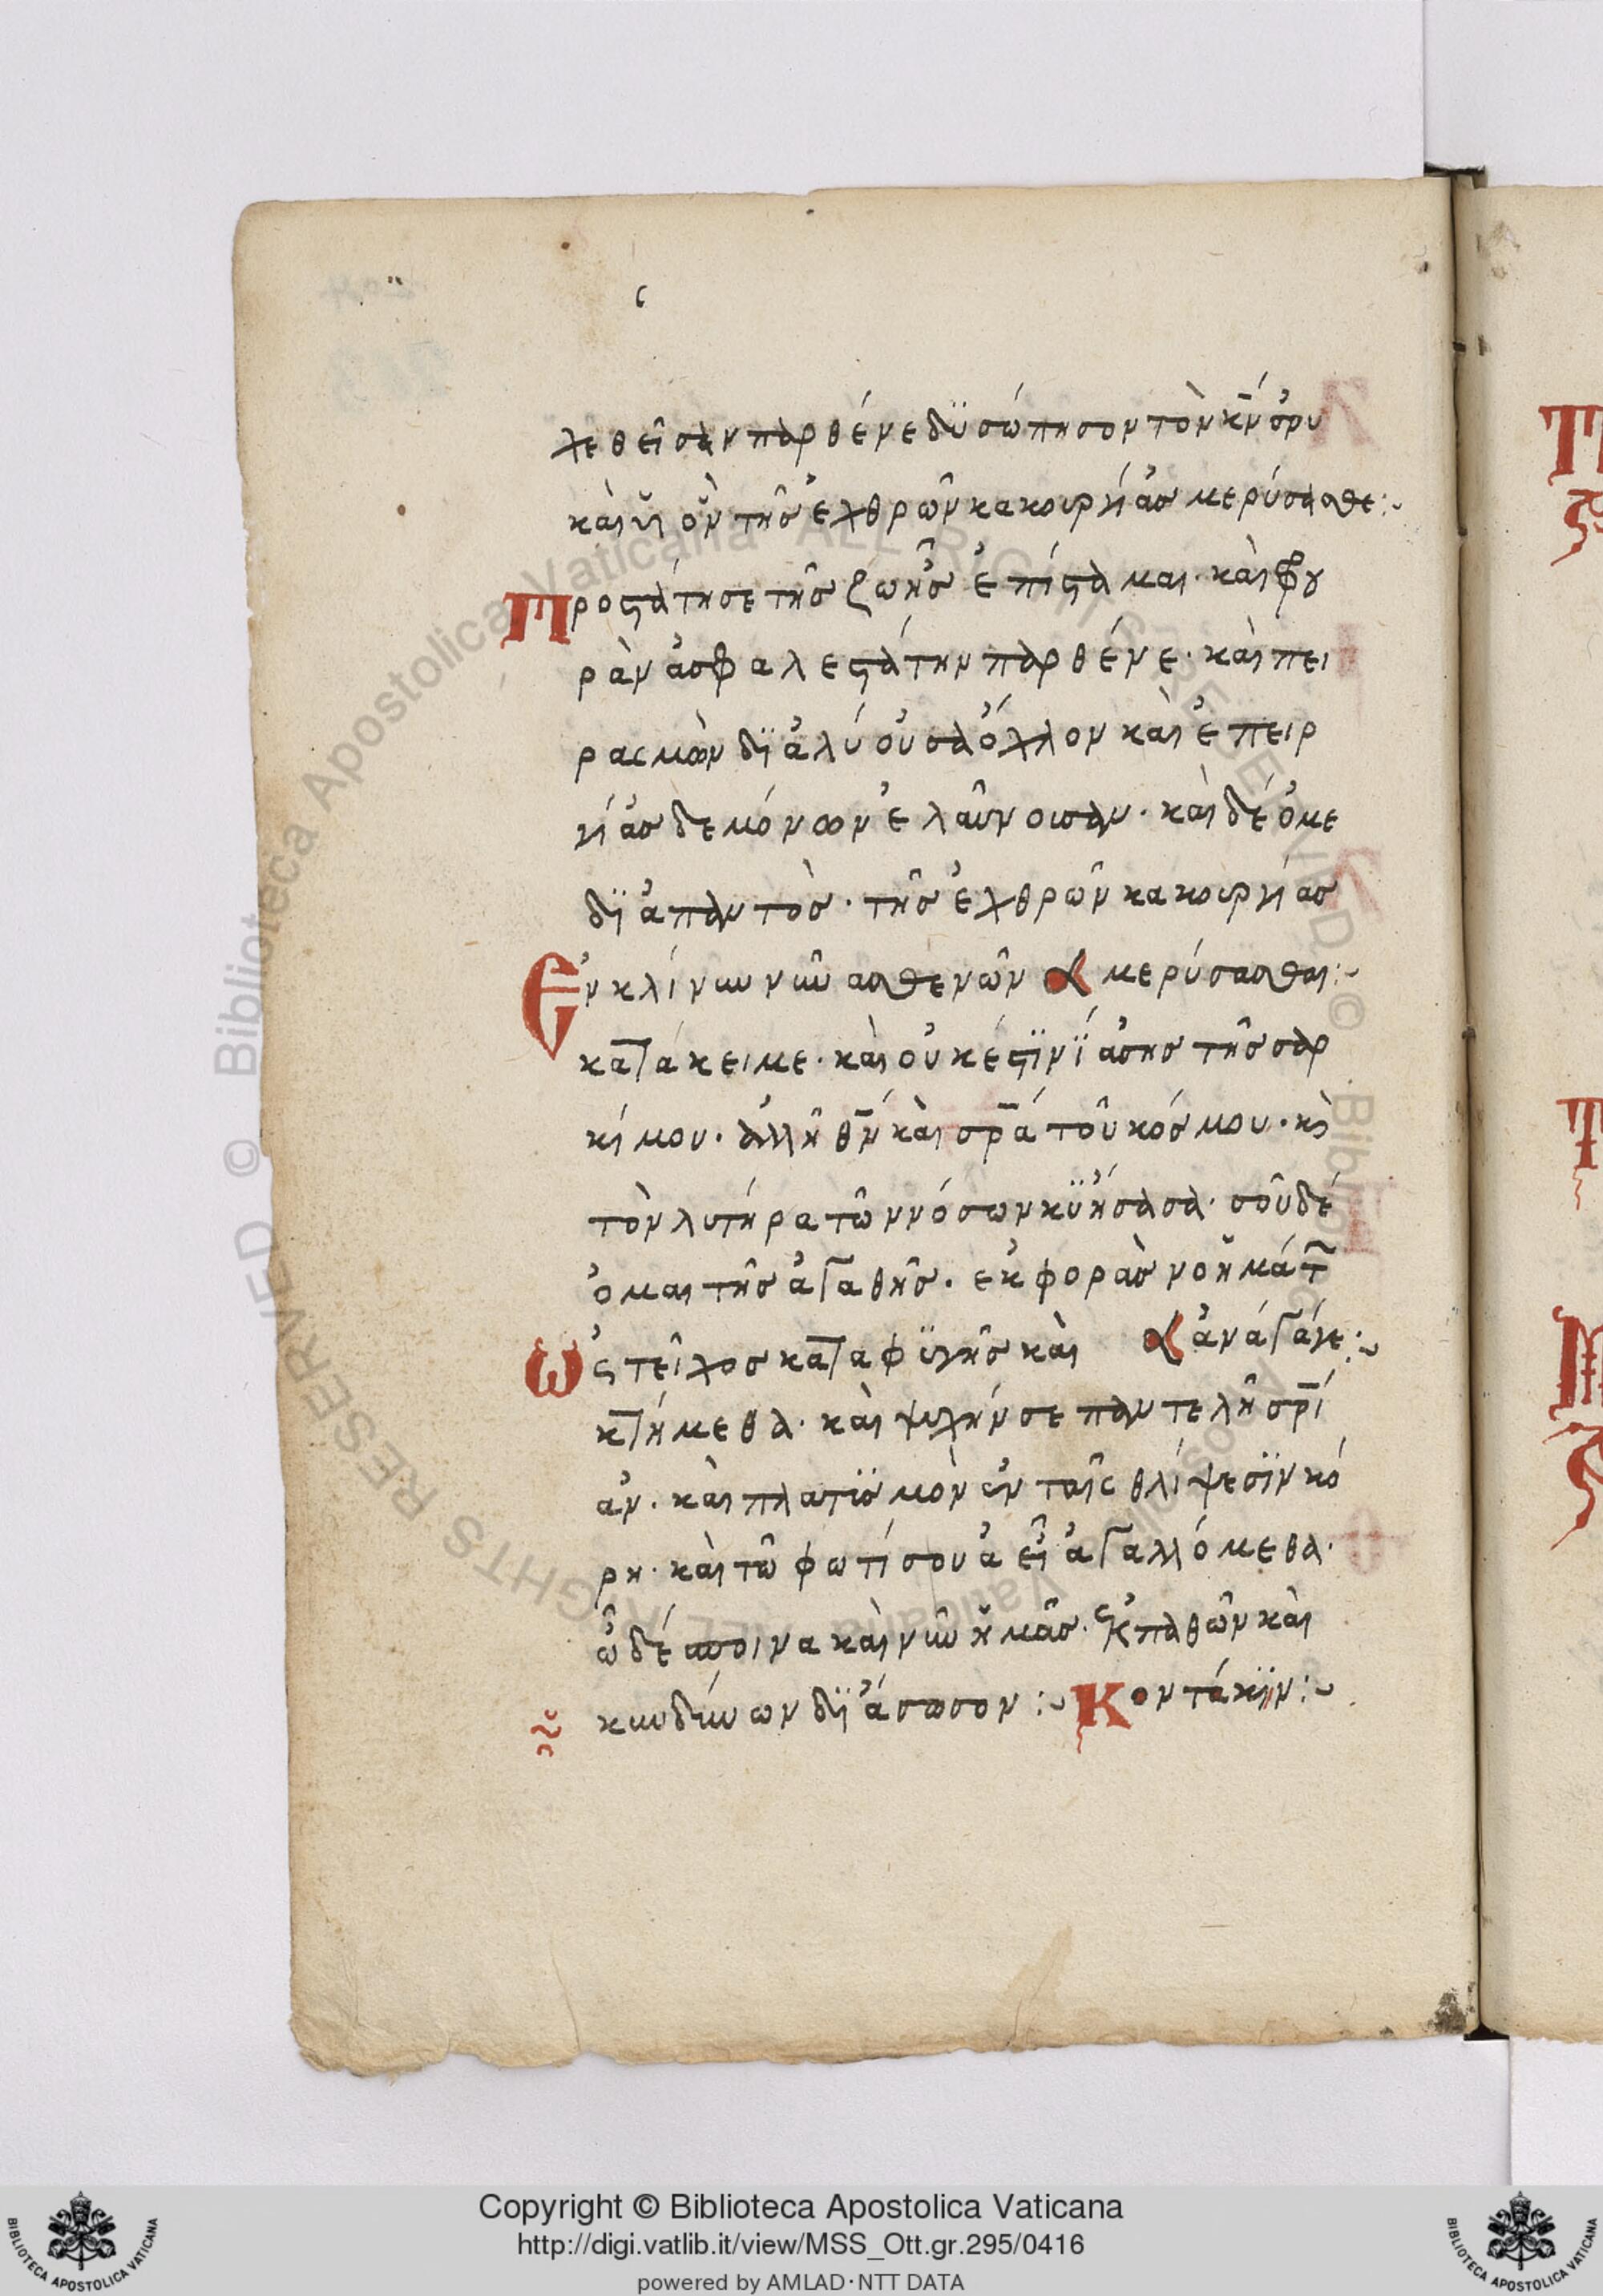 ς
χεθεῖσαν παρθένε δϋσώπησον τὸν κ̅ν́ σὸρυ
καὶ υἱ ὃν τῆς ἐχθρῶν κακουργίας με ρύσασθε:~
Προστάτησε τῆς ζωῆς ἐπίσταμαι· καὶ φρου
ρὰν ἀσφαλεστάτην παρθένε· καὶ πει
ρασμὼν δϊαλύουσα ὄχλον καὶ ἐπειρ
γίας δεμόνων ἐλαῦνοισαν· καὶ δέομε
δϊαπαντὸς· τῆς ἐχθρῶν κακουργίας
Ἐν κλίνιν νῦν ασθενῶν με ρύσασθαι:~
κατάκειμε· καὶ οὐκ έστϊν ϊάσης τῆς σαρ
κί μου· ἀλλῆ θ̅ν́ καὶ σρ̅ά τοῦ κόσμου· κὶ
τὸν λυτήρα τῶν νόσων κϋήσασα· σοῦ δέ
ομαι τῆς ἀγαθῆς· εκ φορὰς νοὴμάτ̅
Ὡς τεῖχος καταφϋγῆς καὶ ἀνάγαγε:~
κτήμεθα· καὶ ψυχήν σε παντελῆ σρ̅ί
αν· καὶ πλατϋσμὸν ἐν ταῖς θλίψεσϊν κό
ρη· καὶ τῶ φωτί σου ἀεῖ ἀγαλλόμεθα·
ὦ δέσποινα καὶ νῦν ἡμᾶς· ἐκ παθῶν καὶ
κινδίνων δϊάσωσον:~ Κοντάκϊν:~